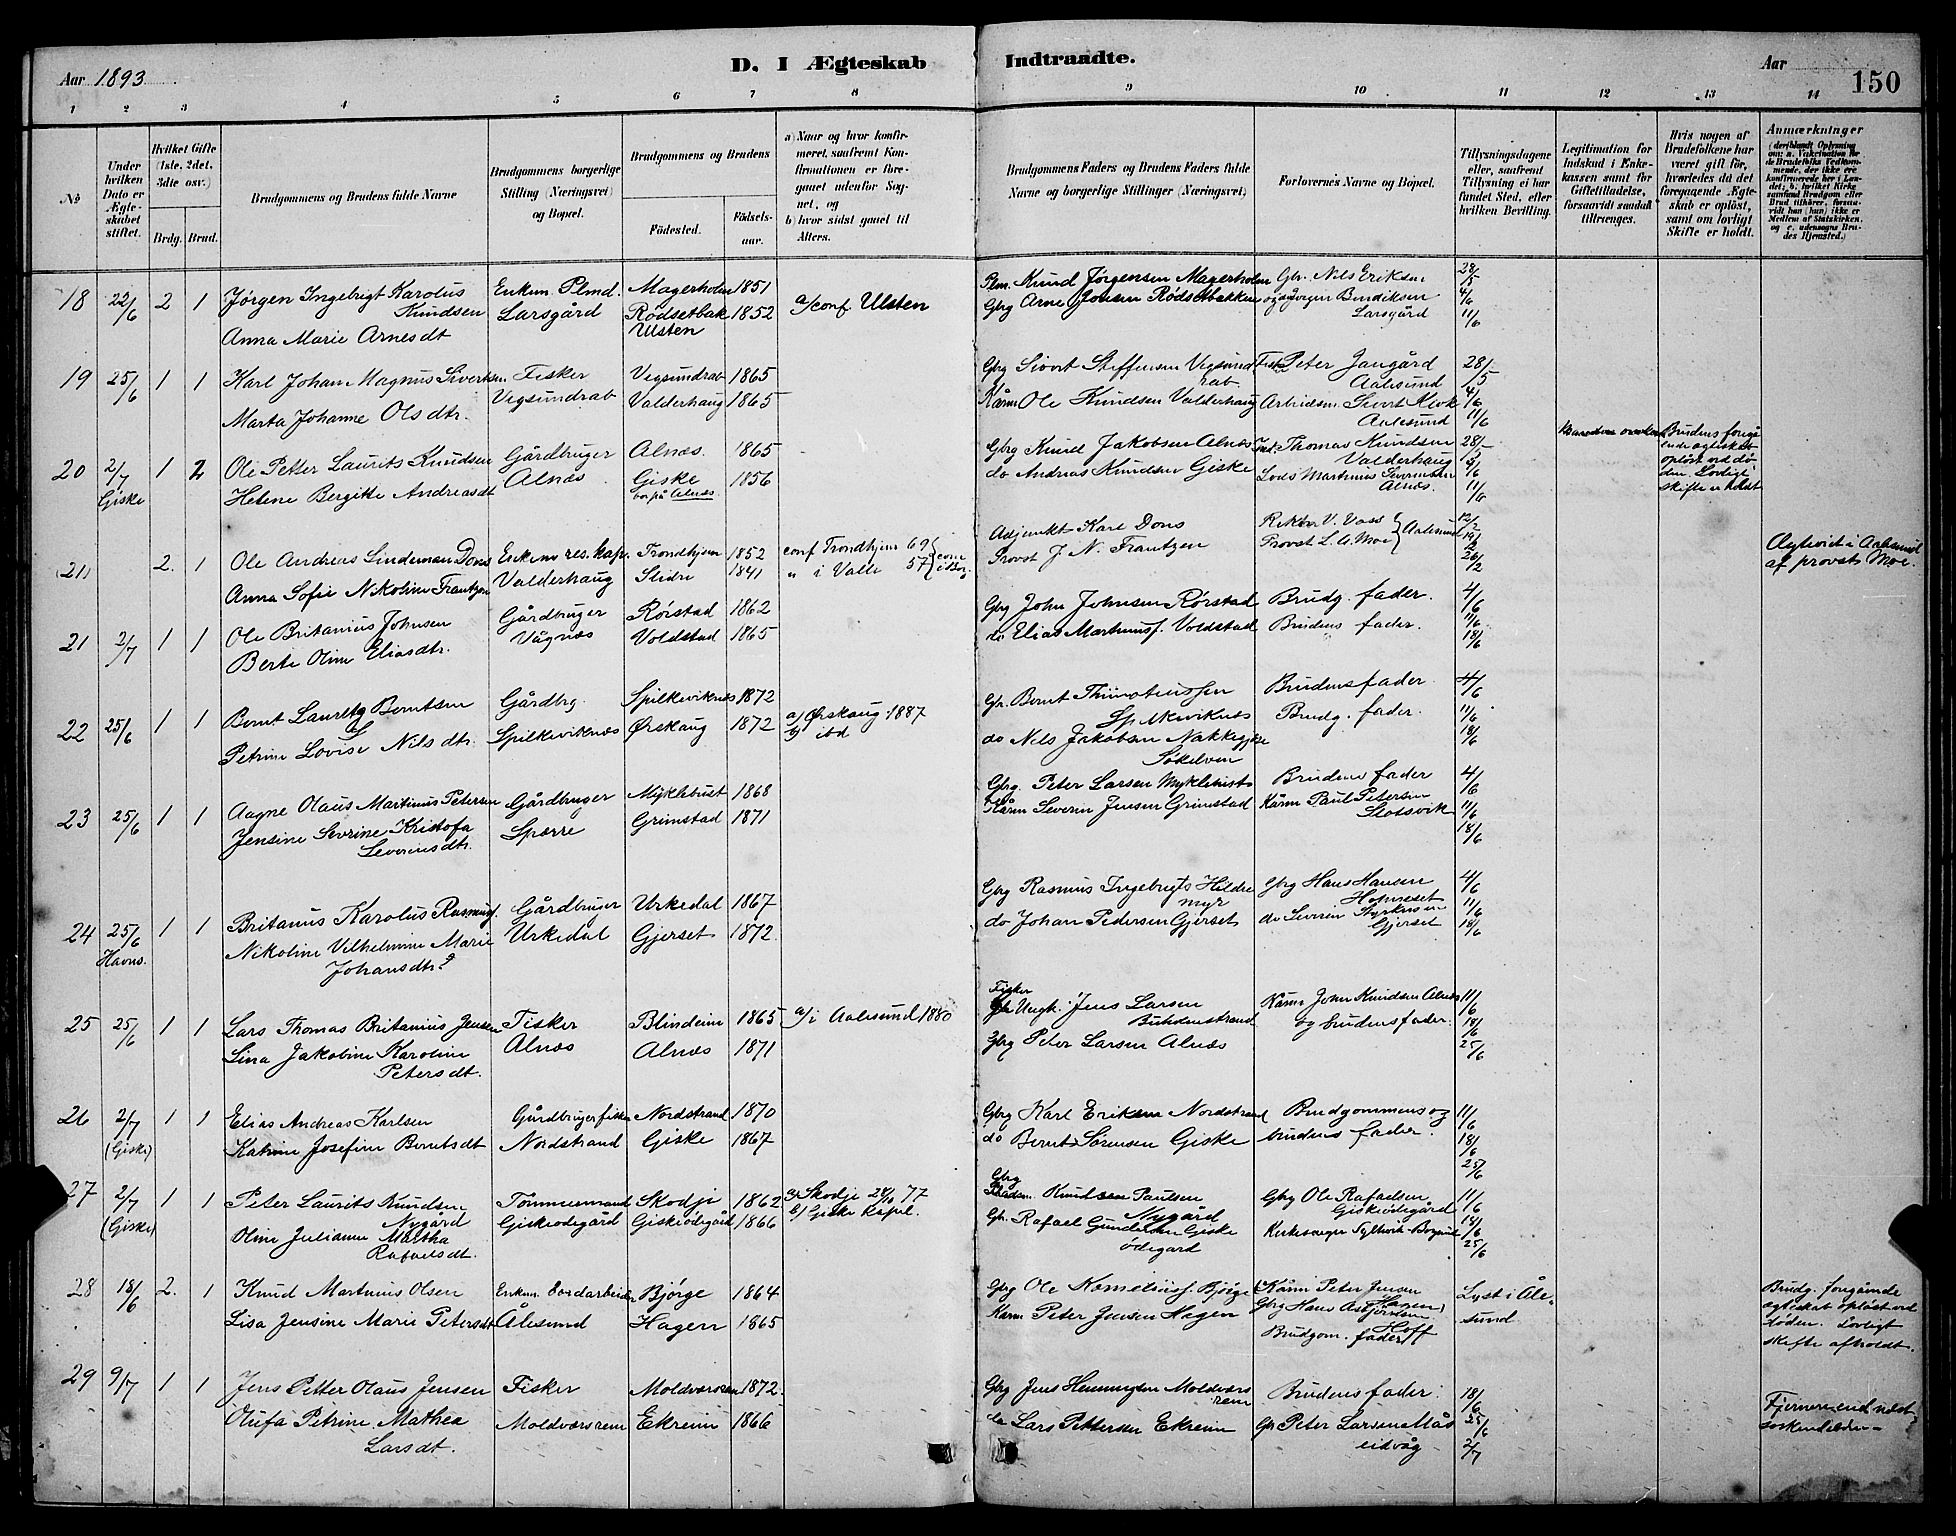 Aar 1893
D. I Ægteskab Indtraadte.
Aar
150
1 2 3 4 5 6 7 8 9 10 11 12 13 14
No
Under hvilken Dato er Ægteskabet stiftet.
Hvilket Gifte (1ste, 2det, 3die osv.)
Brdg. Brud.
Brudgommens og Brudens fulde Navne
Brudgommens borgerlige Stilling (Næringsvei) og Bopæl.
Brudgommens og Brudens
Födested.
Födsels-aar.
a) Naar og hvor konfirmeret, saafremt Konfirmationen er foregaaet udenfor Sognet, og
b) hvor sidst gaaet til Alters.
Brudgommens Faders og Brudens Faders fulde Navne og borgerlige Stillinger (Næringsvei)
Forlovernes Navne og Bopæl.
Tillysningsdagene eller, saafremt Tillysning ei har fundet Sted, efter hvilken Bevilling.
Legitimation for Indskud i Enkekassen samt for Giftetilladelse, forsaavidt saadan tiltrænges.
Hvis nogen af Brudefolkene har været gift før, hvorledes da det foregaaende Ægteskab er oplöst, samt om lovligt Skifte er holdt.
Anmærkninger (deriblandt Oplysning om: a. Vakcination for de Brudefolks Vedkommende, der ikke ere konfirmerede her i Landet; b. hvilket Kirkesamfund Brudgom eller Brud tilhörer, forsaavidt han (hun) ikke er Medlem af Statskirken, og c. udensogns Brudes Hjemsted.)
18 22/6 2 1 Jørgen Ingebrigt Karolus Enkem. Plmd. Magerholm 1851 a/conf Ulsten Plm. Knud Jørgensen Magerholm Gbr. Nils Eriksen 28/5
Knudsen Larsgård Rödsetbak 1852 Gbrg Arne Jensen Rödsetbakken og Bendiksen 4/6
Anna Marie Arnesdt Ulsten Larsgård 11/6
19 25/6 1 1 Karl Johan Magnus Sivertsen Fisker Vegsundrab 1865 Gbrg Sivert Steffensen Vegsund Fisk. Peter Jangård 28/5
Vegsundrab Valderhaug 1865 rab Aalesund
Marta Johanne Olsdtr. Kårm Ole Knudsen Valderhaug Arbeidsm. Sivert 4/6
Aalesund 11/6
20 2/7 1 2 Ole Petter Laurits Knudsen Gårdbruger Alnæs 1865 Gbrg Knud Jakobsen Alnæs Thomas Knudsen 28/5 Brudens foregå
Giske Helene Bergitte Andreasdt Alnæs Giske 1856 do Andreas Knudsen Giske Valderhaug 4/6 ende ægteskab
bor på Alnæs Lods Martinus Alnæs. 11/6 oplöst ved döden. Lovligt
skifte er holdt
(21) 2. 1 Ole Andreas Lindeman Dons Enkem. res. kap. Trondhjem 1852 conf Trondhjem 69 Adjunkt Karl Dons Rektor V. Voss Aalesund 12/2 Ægteviet i Aalesund
Anna Sofie Nikoline Frantzen Valderhaug Slidre 1841 " i Valle 57 Provst J. N. Frantzen Provst L. A. Moe 19/2 af provst Moe.
26/2
21 2/7 1 1 Ole Britanius Johnsen Gårdbruger Rörstad 1862 Gbrg John Johnsen Rørstad Brudg. fader. 4/6
Berte Oline Eliasdtr. Vågnæs Voldstad 1865 do Elias Martinusf. Voldstad Brudens fader. 11/6
18/6
22 25/6 1 1 Bernt Lauritz Berntsen Gårdbrg. Spilkeviknæs 1872 Gr. Bernt Brudens fader. 4/6
Petrine Lovise Nilsdtr. Spilkeviknæs Ørskaug 1872 a/ Ørskaug 1887 Spilkeviknæs Brudg. fader. 11/6
b/ ibd do Nils Jakobsen 18/6
Søkelven
23 25/6 1 1 Aagne Olaus Martinus Petersen Gårdbruger Myklebust 1868 Gbrg. Peter Larsen Myklebust Brudens fader 4/6
Jensine Sevrine Kristofa Spærre Grimstad 1871 Kårm Severin Jensen Grimstad Kårm Paul Petersen 11/6
Severinsdtr. Slotsvik 18/6
24 25/6 1 1 Britanius Karolus Rasmusf. Gårdbruger Urkedal 1867 Gbrg Rasmus Ingebrigts Hildre Gbrg Hans Hansen 4/6
Havns. Nikoline Vilhelmine Marie Urkedal Gjerset 1872. myr 11/6
Johansdtr. do Johan Pedersen Gjerset do Gjerset 18/6
25 25/6 1 1 Lars Thomas Britanius Jensen Fisker Blindeim 1865 a/ i Aalesund 1880 Fisker Ungk. Jens Larsen Kårm John Knudsen Alnæs 11/6
Lina Jakobine Karoline Alnæs Alnæs 1871 og brudens fader. 18/6
Petersdt. Gbrg Peter Larsen Alnæs 25/6
26 2/7 1 1 Elias Andreas Karlsen Gårdbruger fisker Nordstrand 1870 Gbrg Karl Eriksen Nordstrand Brudgommens og 11/6
(Giske) Katrine Josefine Berntsdt Nordstrand Giske 1867 do Bernt Sørensen Giske brudens fader. 18/6
25/6
27 2/7 1 1 Peter Laurits Knudsen Tömmermand Skodje 1862 a/ Skodje 77 Gbrg Knudsen Paulsen Gbrg Ole Rafaelsen 11/6
(Giske) Nygård Giskeödegård Giskeödegård 1866 b/ Giske Kapel. Nygård Giskeödegård 18/6
Oline Julianne Martha Gb. Rafael Giske Kirkesanger 25/6
Rafaelsdt. ödegard
28 18/6 2. 1 Knud Martinus Olsen Enkem. Bjørge 1864 Gbrg Ole Korneliusf. Bjørge Kårm Peter Jensen Lyst i Åle- Brudg. foregående
Lisa Jensine Marie Petersdt Ålesund Hagen 1865 Kårm Peter Jensen Hagen Gbrg Hans Hoff sund ægteskab oplöst ved
Brudgom. fader döden. Lovligt
skifte afholdt.
29 9/7 1 1 Jens Petter Olaus Jensen Fisker Moldværsrem 1872. Gbrg Jens Henningsen Moldværs Brudens fader. 18/6
Olufa Petrine Mathea Moldværsrem Ekreim 1866 rem 25/6 Fjernere end næst-
Larsdt. do Lars Pettersen Ekreim Gb. Peter Larsen Mås 2/7 søskendebørn
eidvåg